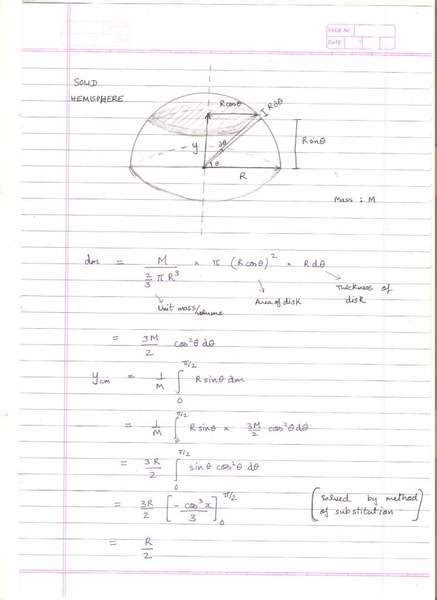 PAGE NO.
DATE
SOLID
HEMISPHERE
Rcosθ
Rdθ
y
dθ
θ
R
Rsinθ
Mass : M
dm = M / (2/3 πR³) × π (Rcosθ)² × Rdθ
Unit mass/volume
Area of disk
Thickness of disk
= 3M/2 cos²θ dθ
y_cm = 1/M ∫₀^(π/2) Rsinθ dm
= 1/M ∫₀^(π/2) Rsinθ × 3M/2 cos²θ dθ
= 3R/2 ∫₀^(π/2) sinθ cos²θ dθ
= 3R/2 [ -cos³x / 3 ]₀^(π/2)
[ solved by method
of substitution ]
= R/2